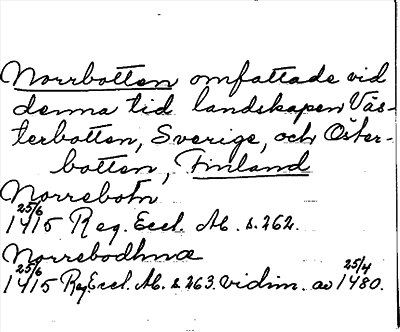 Norrbotten omfattade vid
denna tid landskapen Väs-
terbotten, Sverige, och Öster-
botten, Finland
Norrebotn
25/6 1415 Reg. Eccl. Ab. s. 262.
Norrebodhnæ
25/6 1415 Reg Eccl. Ab. s 263. vidim. av 25/4 1480.